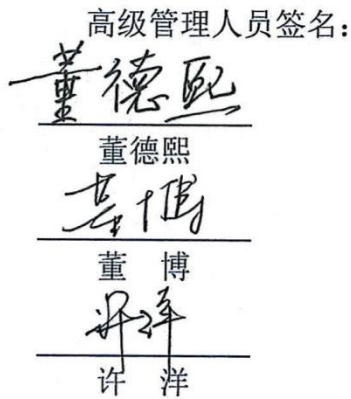 高级管理人员签名：
董德熙
董德熙
董博
董 博
许洋
许 洋